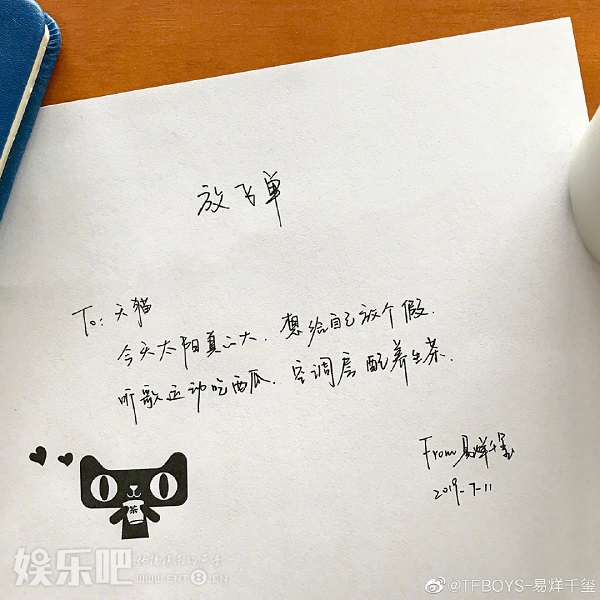 放飞单
To: 天猫
今天太阳真心大. 想给自己放个假.
听歌运动吃西瓜. 空调房配养生茶.
From 易烊千玺
2019-7-11
茶
娱乐吧
WWW.ENT8.CN
@TFBOYS-易烊千玺